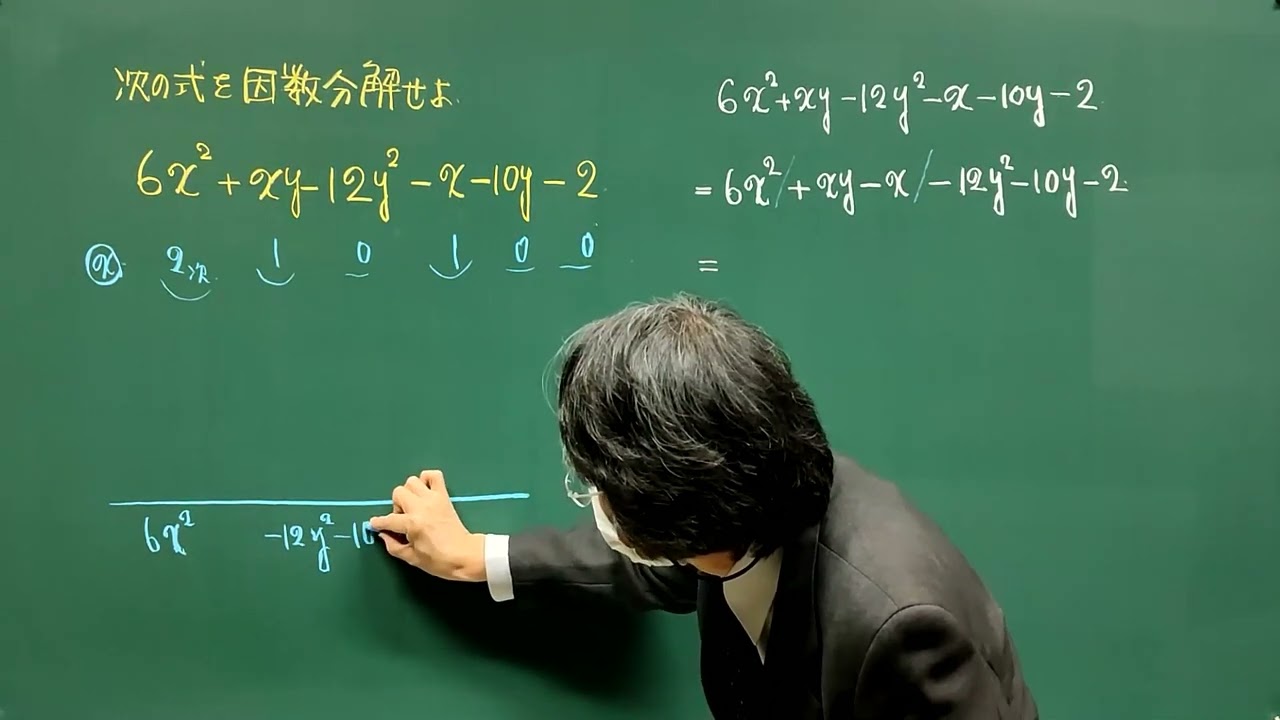 次の式を因数分解せよ.
6x²+xy-12y²-x-10y-2
ⓧ 2次 1 0 1 0 0
6x² -12y²-10
6x²+xy-12y²-x-10y-2
= 6x²/+xy-x/-12y²-10y-2
=